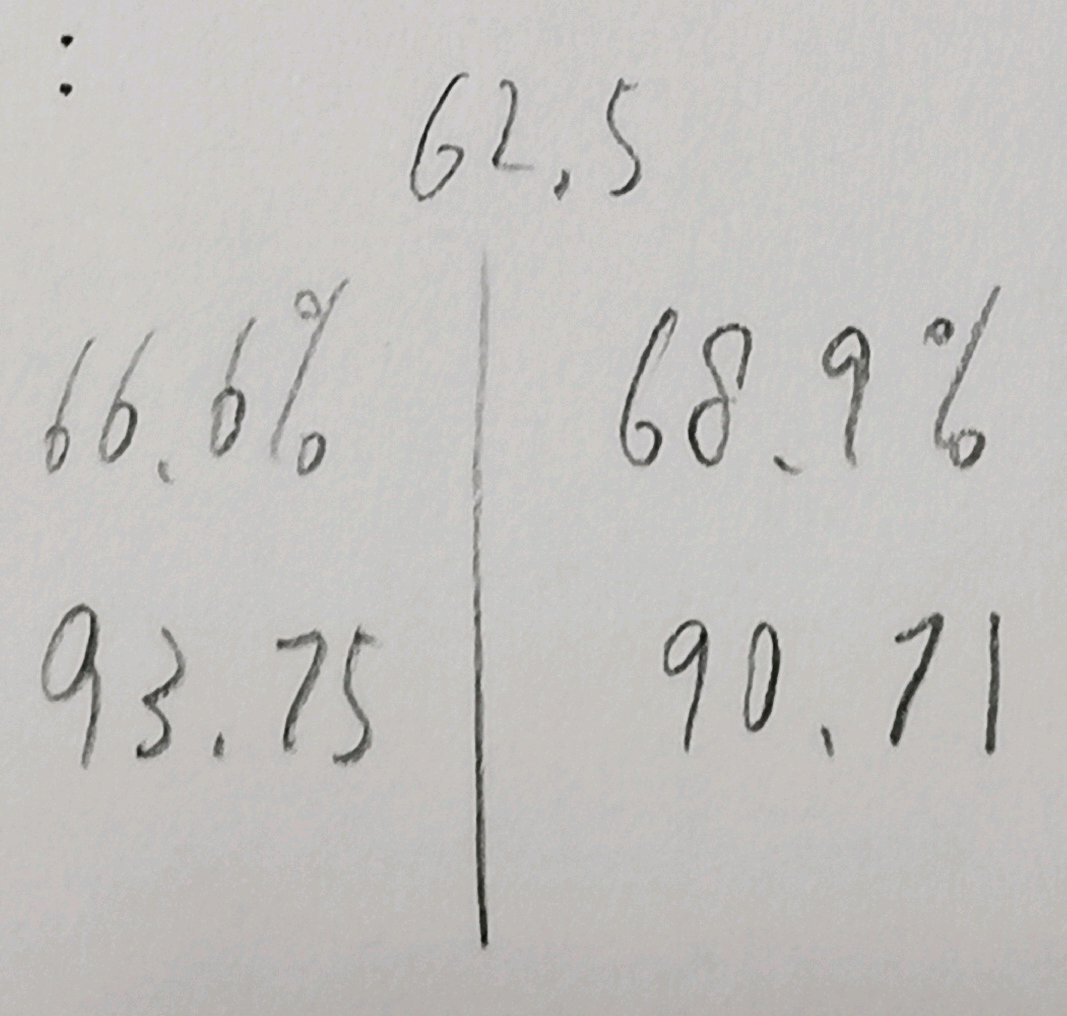 :
62.5
66.6% | 68.9%
93.75 | 90.71